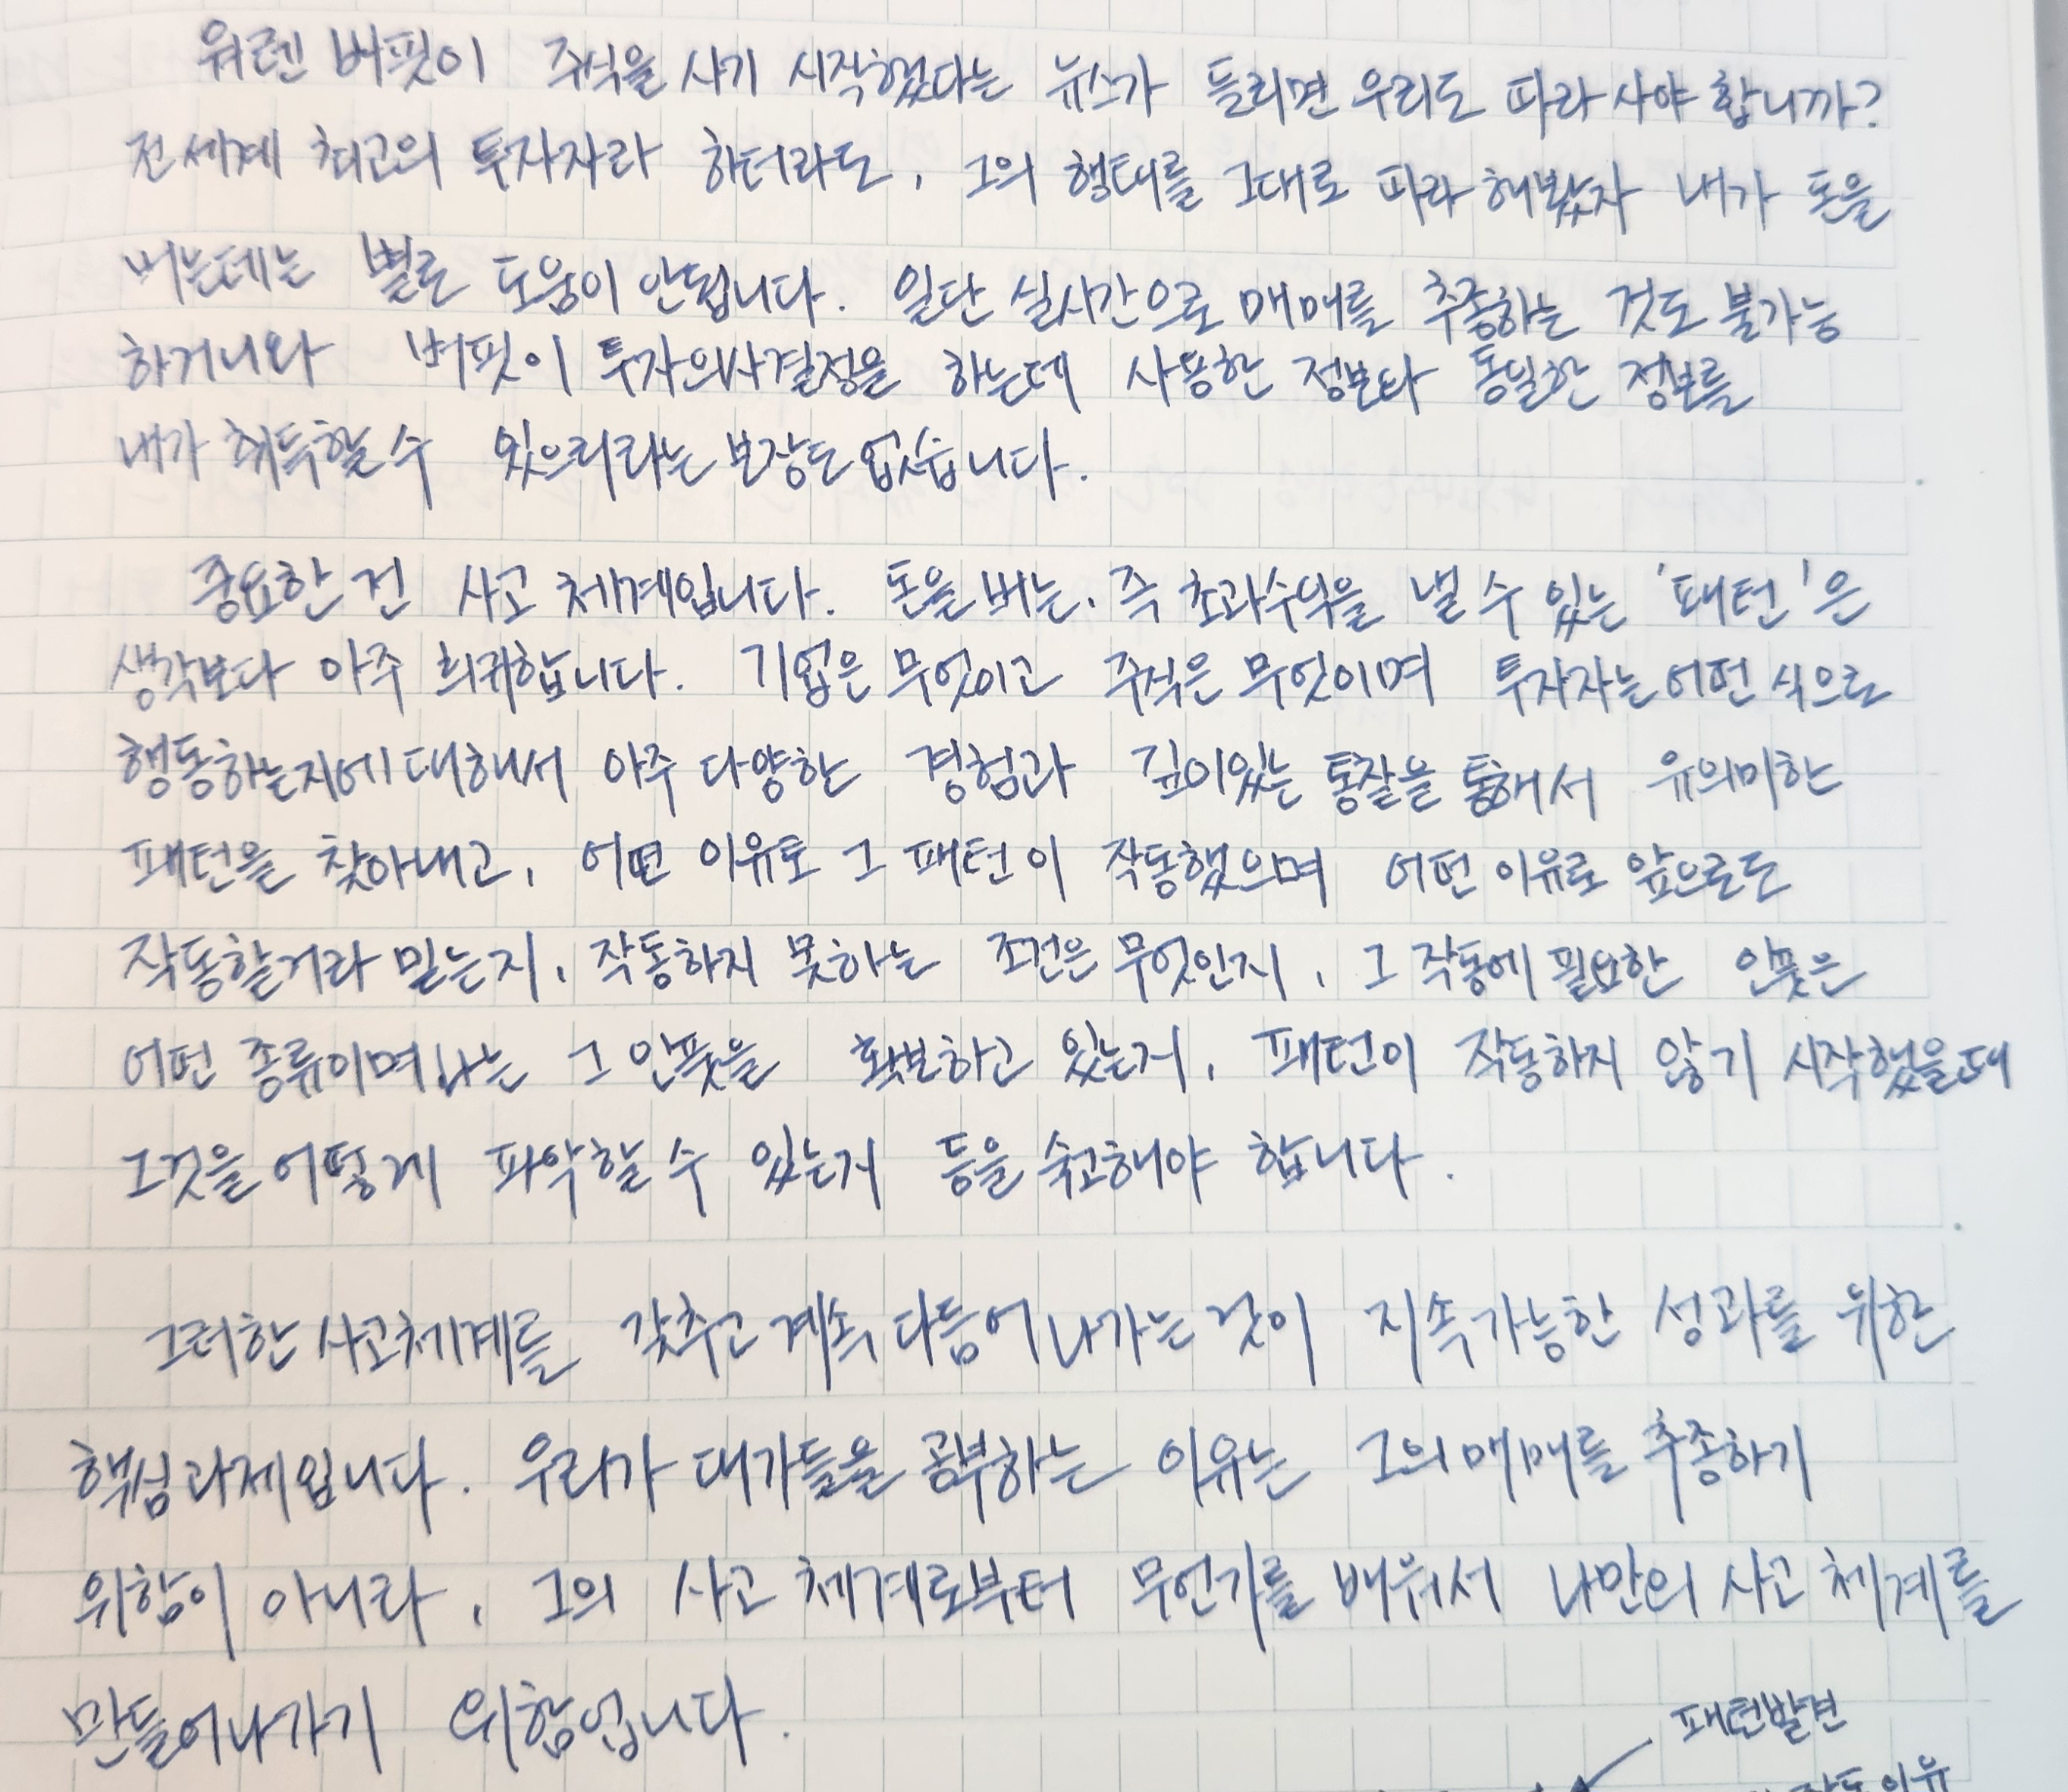 워렌 버핏이 주식을 사기 시작했다는 뉴스가 들리면 우리도 따라 사야 합니까?
전세계 최고의 투자자라 하더라도, 그의 행태를 그대로 따라 해봤자 내가 돈을
버는데는 별로 도움이 안됩니다. 일단 실시간으로 매매를 추종하는 것도 불가능
하거니와 버핏이 투자의사결정을 하는데 사용한 정보와 동일한 정보를
내가 취득할 수 있으리라는 보장도 없습니다.
중요한 건 사고 체계입니다. 돈을 버는, 즉 초과수익을 낼 수 있는 '패턴'은
생각보다 아주 희귀합니다. 기업은 무엇이고 주식은 무엇이며 투자자는 어떤 식으로
행동하는지에 대해서 아주 다양한 경험과 깊이있는 통찰을 통해서 유의미한
패턴을 찾아내고, 어떤 이유로 그 패턴이 작동했으며 어떤 이유로 앞으로도
작동할거라 믿는지, 작동하지 못하는 조건은 무엇인지, 그 작동에 필요한 인풋은
어떤 종류이며 나는 그 인풋을 확보하고 있는지, 패턴이 작동하지 않기 시작했을때
그것을 어떻게 파악할 수 있는지 등을 숙고해야 합니다.
그러한 사고체계를 갖추고 계속 다듬어 나가는 것이 지속가능한 성과를 위한
핵심과제입니다. 우리가 대가들을 공부하는 이유는 그의 매매를 추종하기
위함이 아니라, 그의 사고 체계로부터 무언가를 배워서 나만의 사고 체계를
만들어나가기 위함입니다.
패턴발견
이유